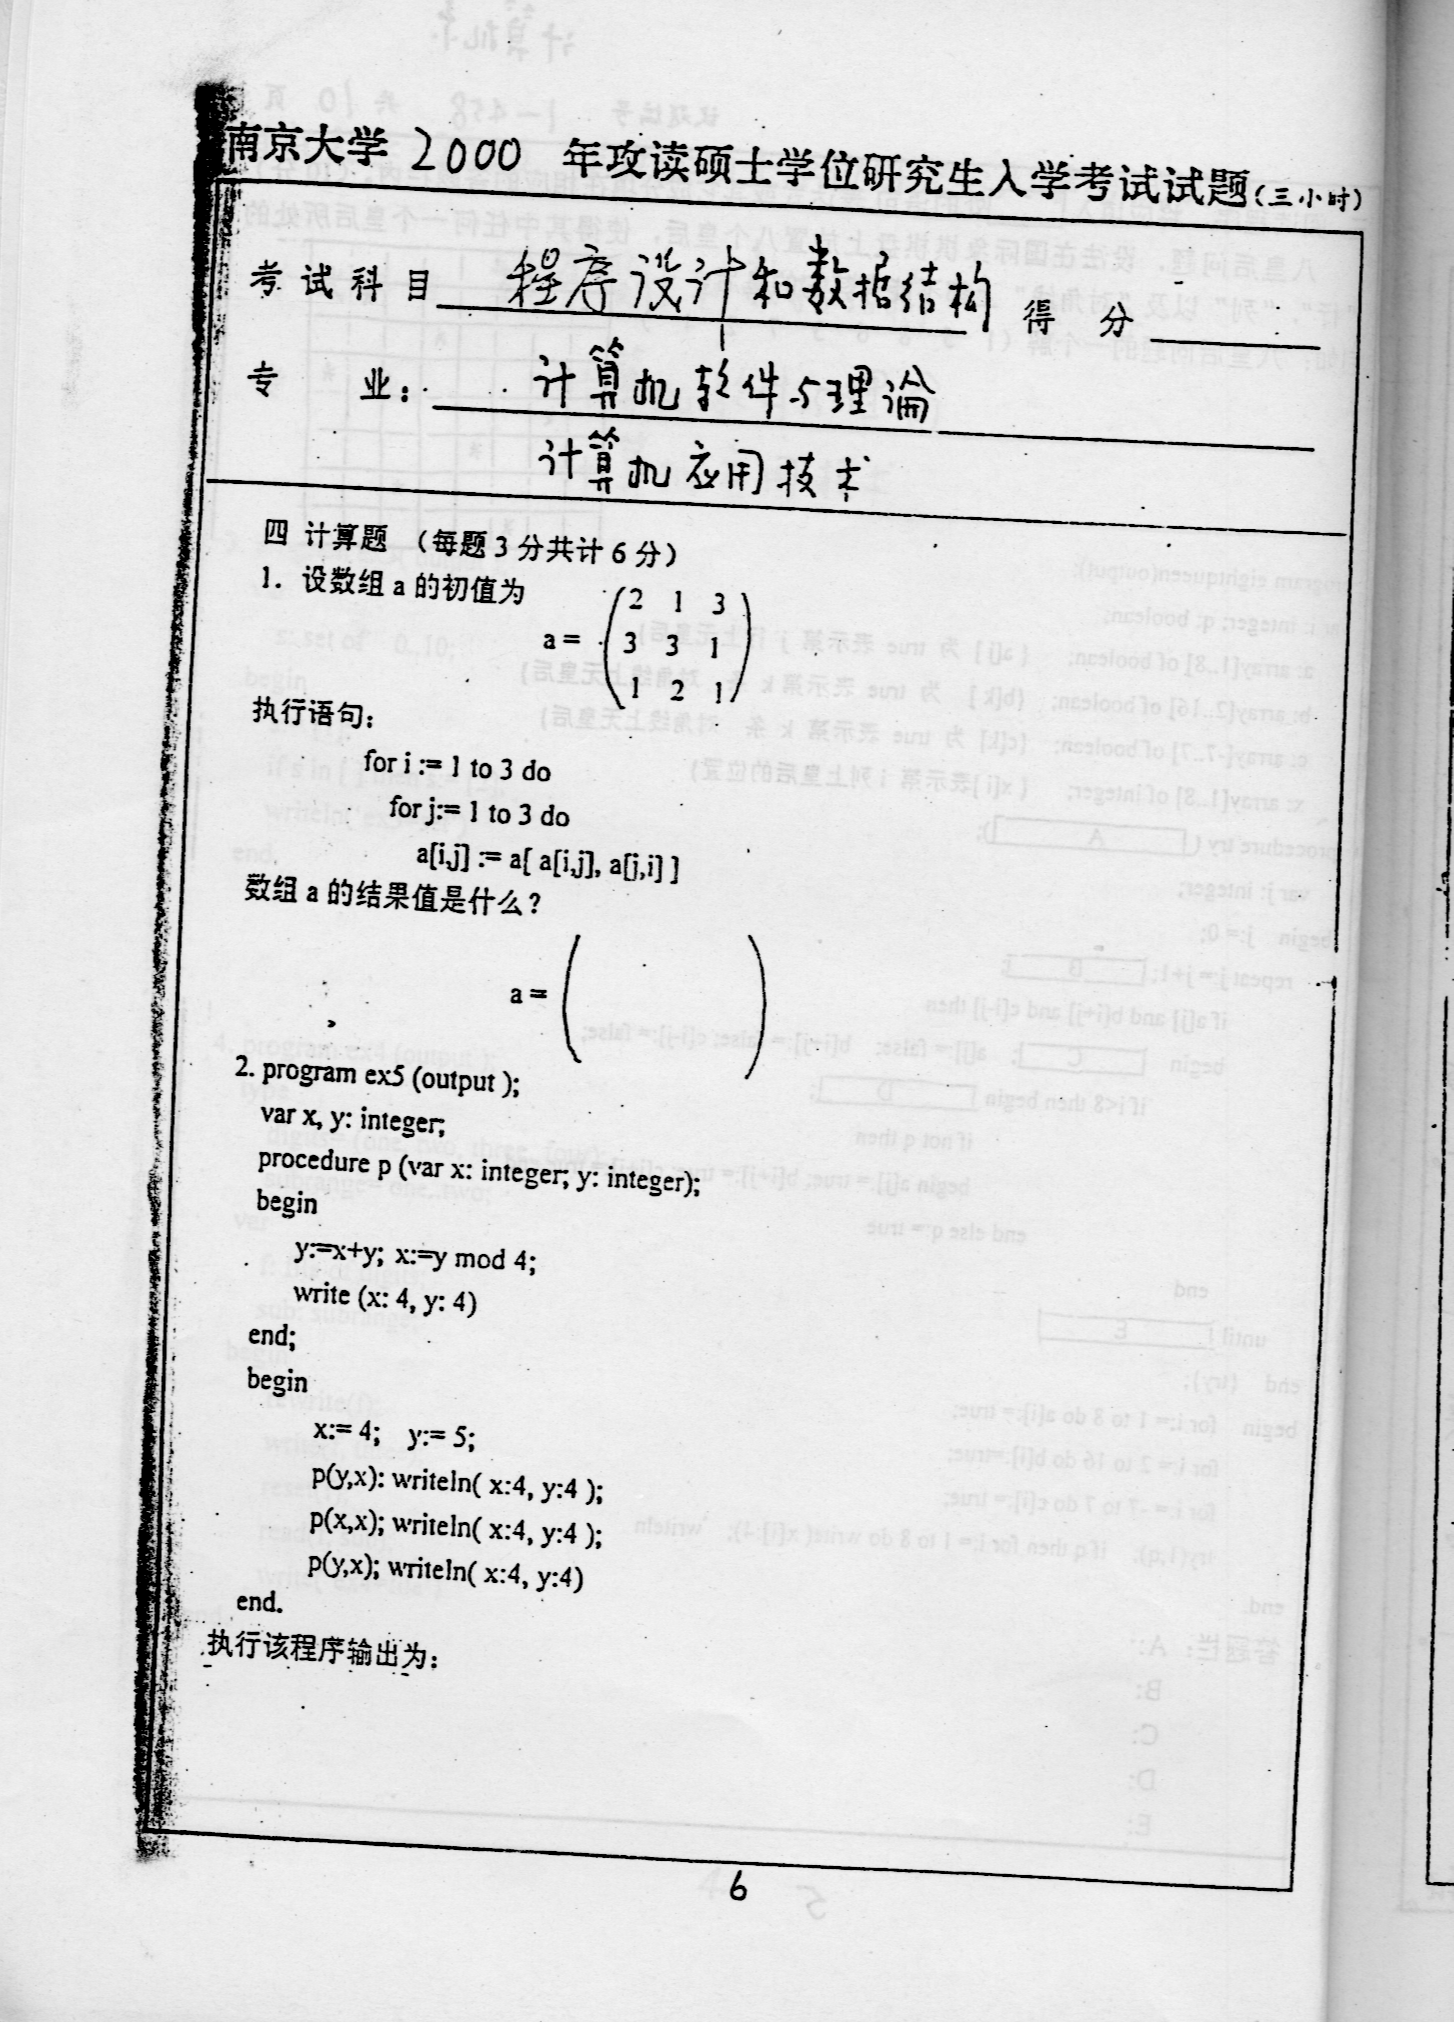 南京大学 2000 年攻读硕士学位研究生入学考试试题(三小时)
考试科目 程序设计和数据结构 得 分
专 业： 计算机软件与理論
计算机应用技术
四 计算题 （每题3分共计6分）
1. 设数组 a 的初值为
2 1 3
a = 3 3 1
1 2 1
执行语句：
for i := 1 to 3 do
for j:= 1 to 3 do
a[i,j] := a[ a[i,j], a[j,i] ]
数组 a 的结果值是什么？
a =
2. program ex5 (output );
var x, y: integer;
procedure p (var x: integer; y: integer);
begin
y:=x+y; x:=y mod 4;
write (x: 4, y: 4)
end;
begin
x:= 4; y:= 5;
p(y,x): writeln( x:4, y:4 );
p(x,x); writeln( x:4, y:4 );
p(y,x); writeln( x:4, y:4)
end.
执行该程序输出为：
6